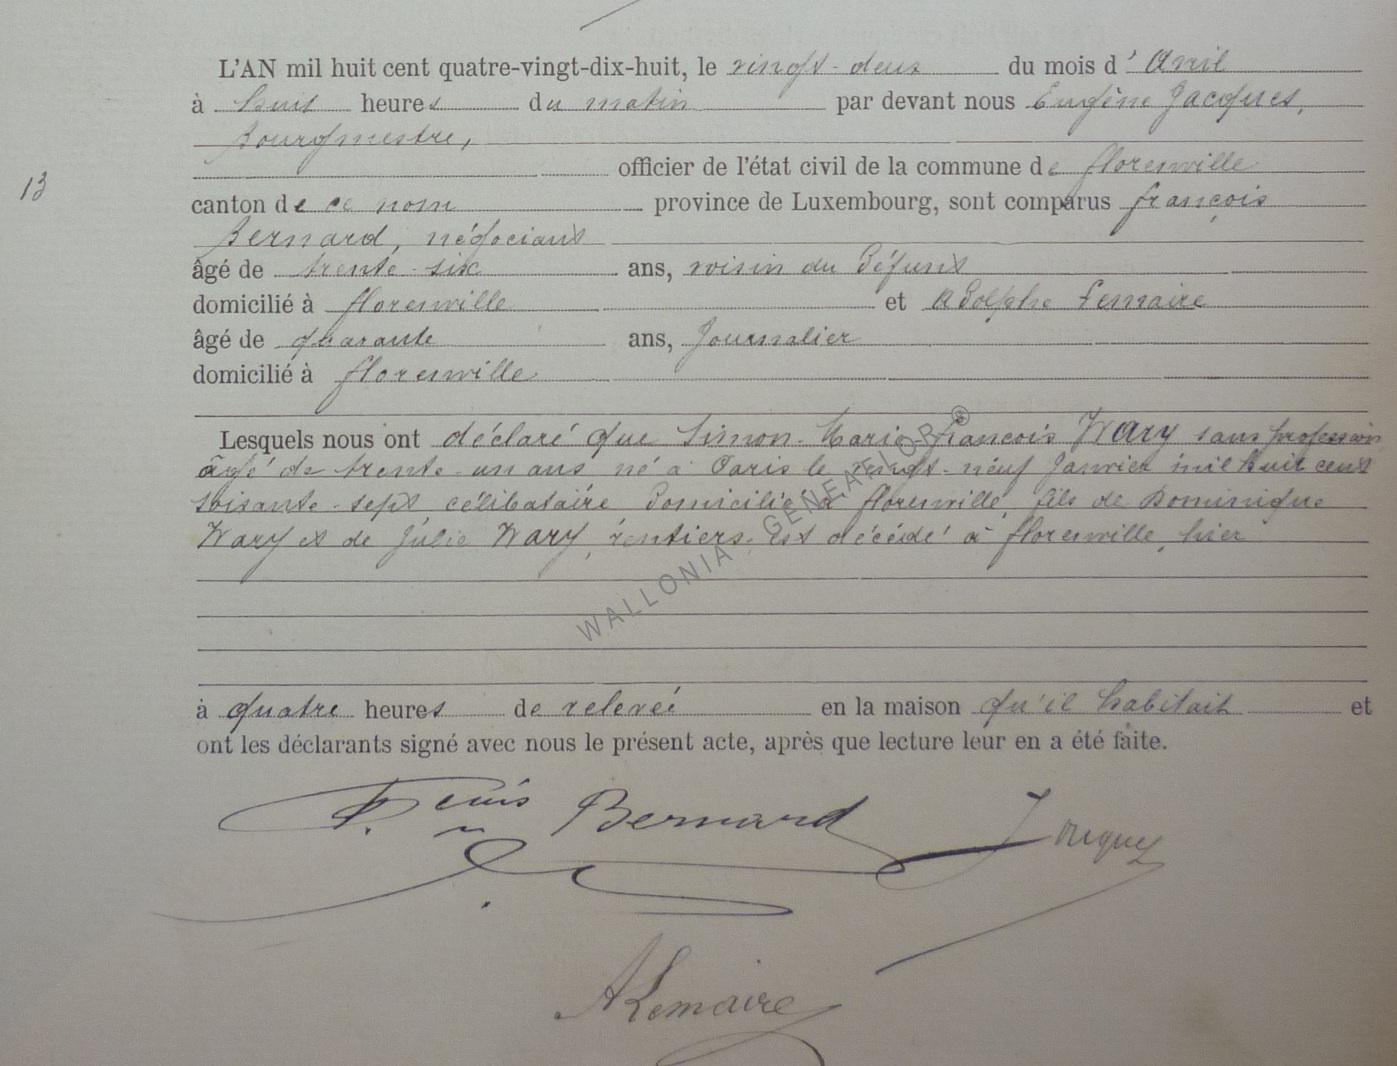 L'AN mil huit cent quatre-vingt-dix-huit, le vingt-deux du mois d'Avril
à huit heures du matin par devant nous Eugène Jacques,
Bourgmestre,
officier de l'état civil de la commune de florenville
13
canton de ce nom province de Luxembourg, sont comparus françois
Bernard, négociant
âgé de trente-six ans, voisin du Défunt
domicilié à florenville et Adolphe Lemaire
âgé de quarante ans, Journalier
domicilié à florenville
Lesquels nous ont déclaré que Simon-Marie-françois Wary sans profession
âgé de trente-un ans né à Paris le vingt-neuf Janvier mil huit cent
soixante-sept célibataire Domicilié à florenville, fils de Dominique
Wary et de Julie Wary, rentiers. Est décédé à florenville, hier
WALLONIA GENEALOR®
à quatre heures de relevée en la maison qu'il habitait et
ont les déclarants signé avec nous le présent acte, après que lecture leur en a été faite.
Bernard Jacques
ALemaire